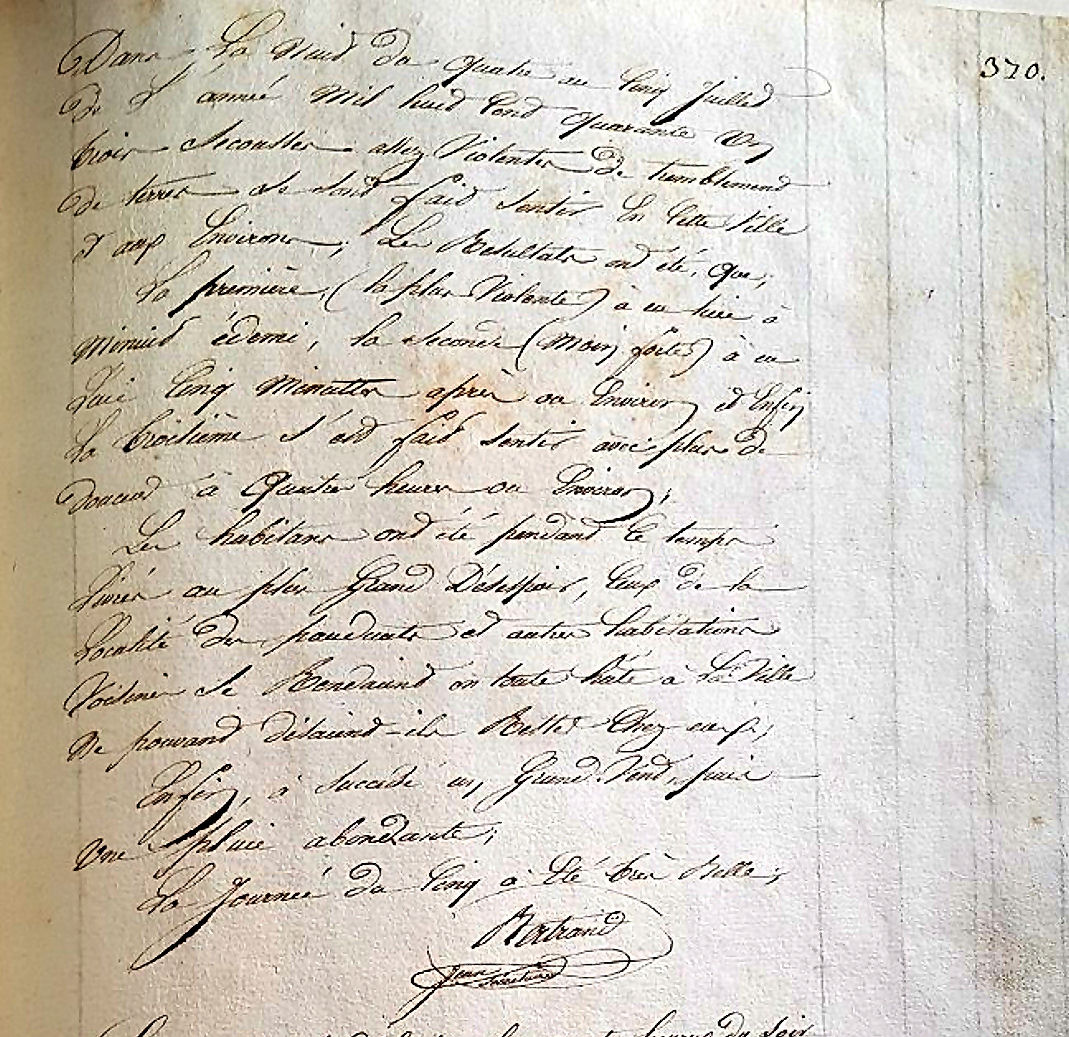 370.
Dans La Nuit du quatre au Cinq Juillet
de L'année Mil huit Cent quarante Un
trois Secousses assez Violentes de tremblement
de terres se sont fait sentir En Cette Ville
et aux Environs; Les Resultats ont été, que,
La première, (la plus Violente) à eu lieu à
Minuit édemi, la seconde (Moins fortes) à eu
Lieu Cinq Minuttes après ou Environ, et Enfin
La troisième s'est fait sentir avec plus de
douceur à Quatre heures ou Environ;
Les habitans ont été pendant Ce temps
Livrés au plus Grand Désespoir, Ceux de la
Localité des et autres habitations
Voisines se Rendaient en toute hâte à La Ville
Ne pouvant disaient-ils Rester Chez eux;
Enfin, à succédé un, Grand Vent, puis
Une pluie abondante;
La Journée du Cinq à Été très Belle;
Bertrand
Jean
Secrétaire
du soir